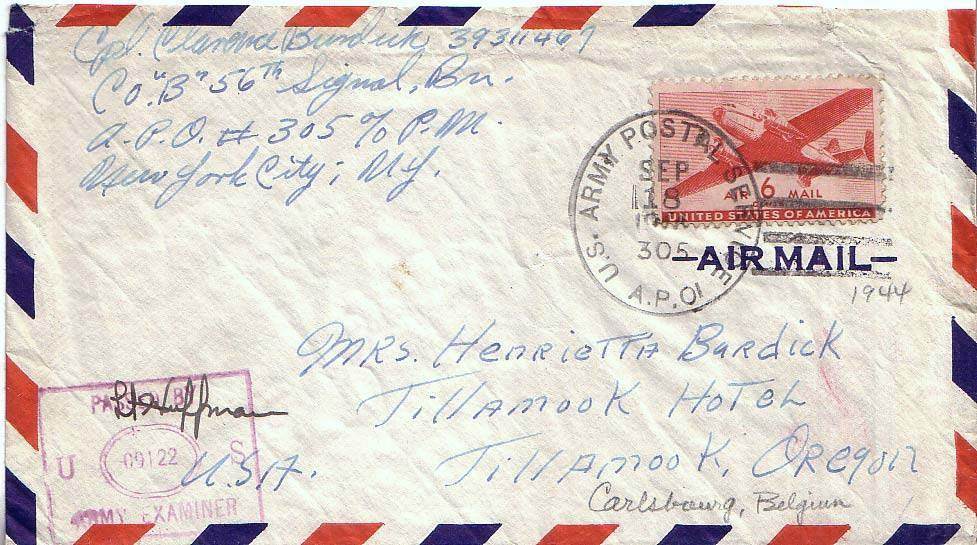 Cpl. Clarence Burdick 39311467
Co. "B" 56th Signal, Bn.
A.P.O. # 305 c/o P.M.
New York City, N.Y.
U.S. ARMY POSTAL SERVICE
SEP
18
305
A.P.O.
AIR 6 MAIL
UNITED STATES OF AMERICA
-AIR MAIL-
1944
Mrs. Henrietta Burdick
Tillamook Hotel
Tillamook, Oregon
U.S.A.
Carlsbourg, Belgium
PASSED BY
Lt Huffman
U 09122 S
ARMY EXAMINER